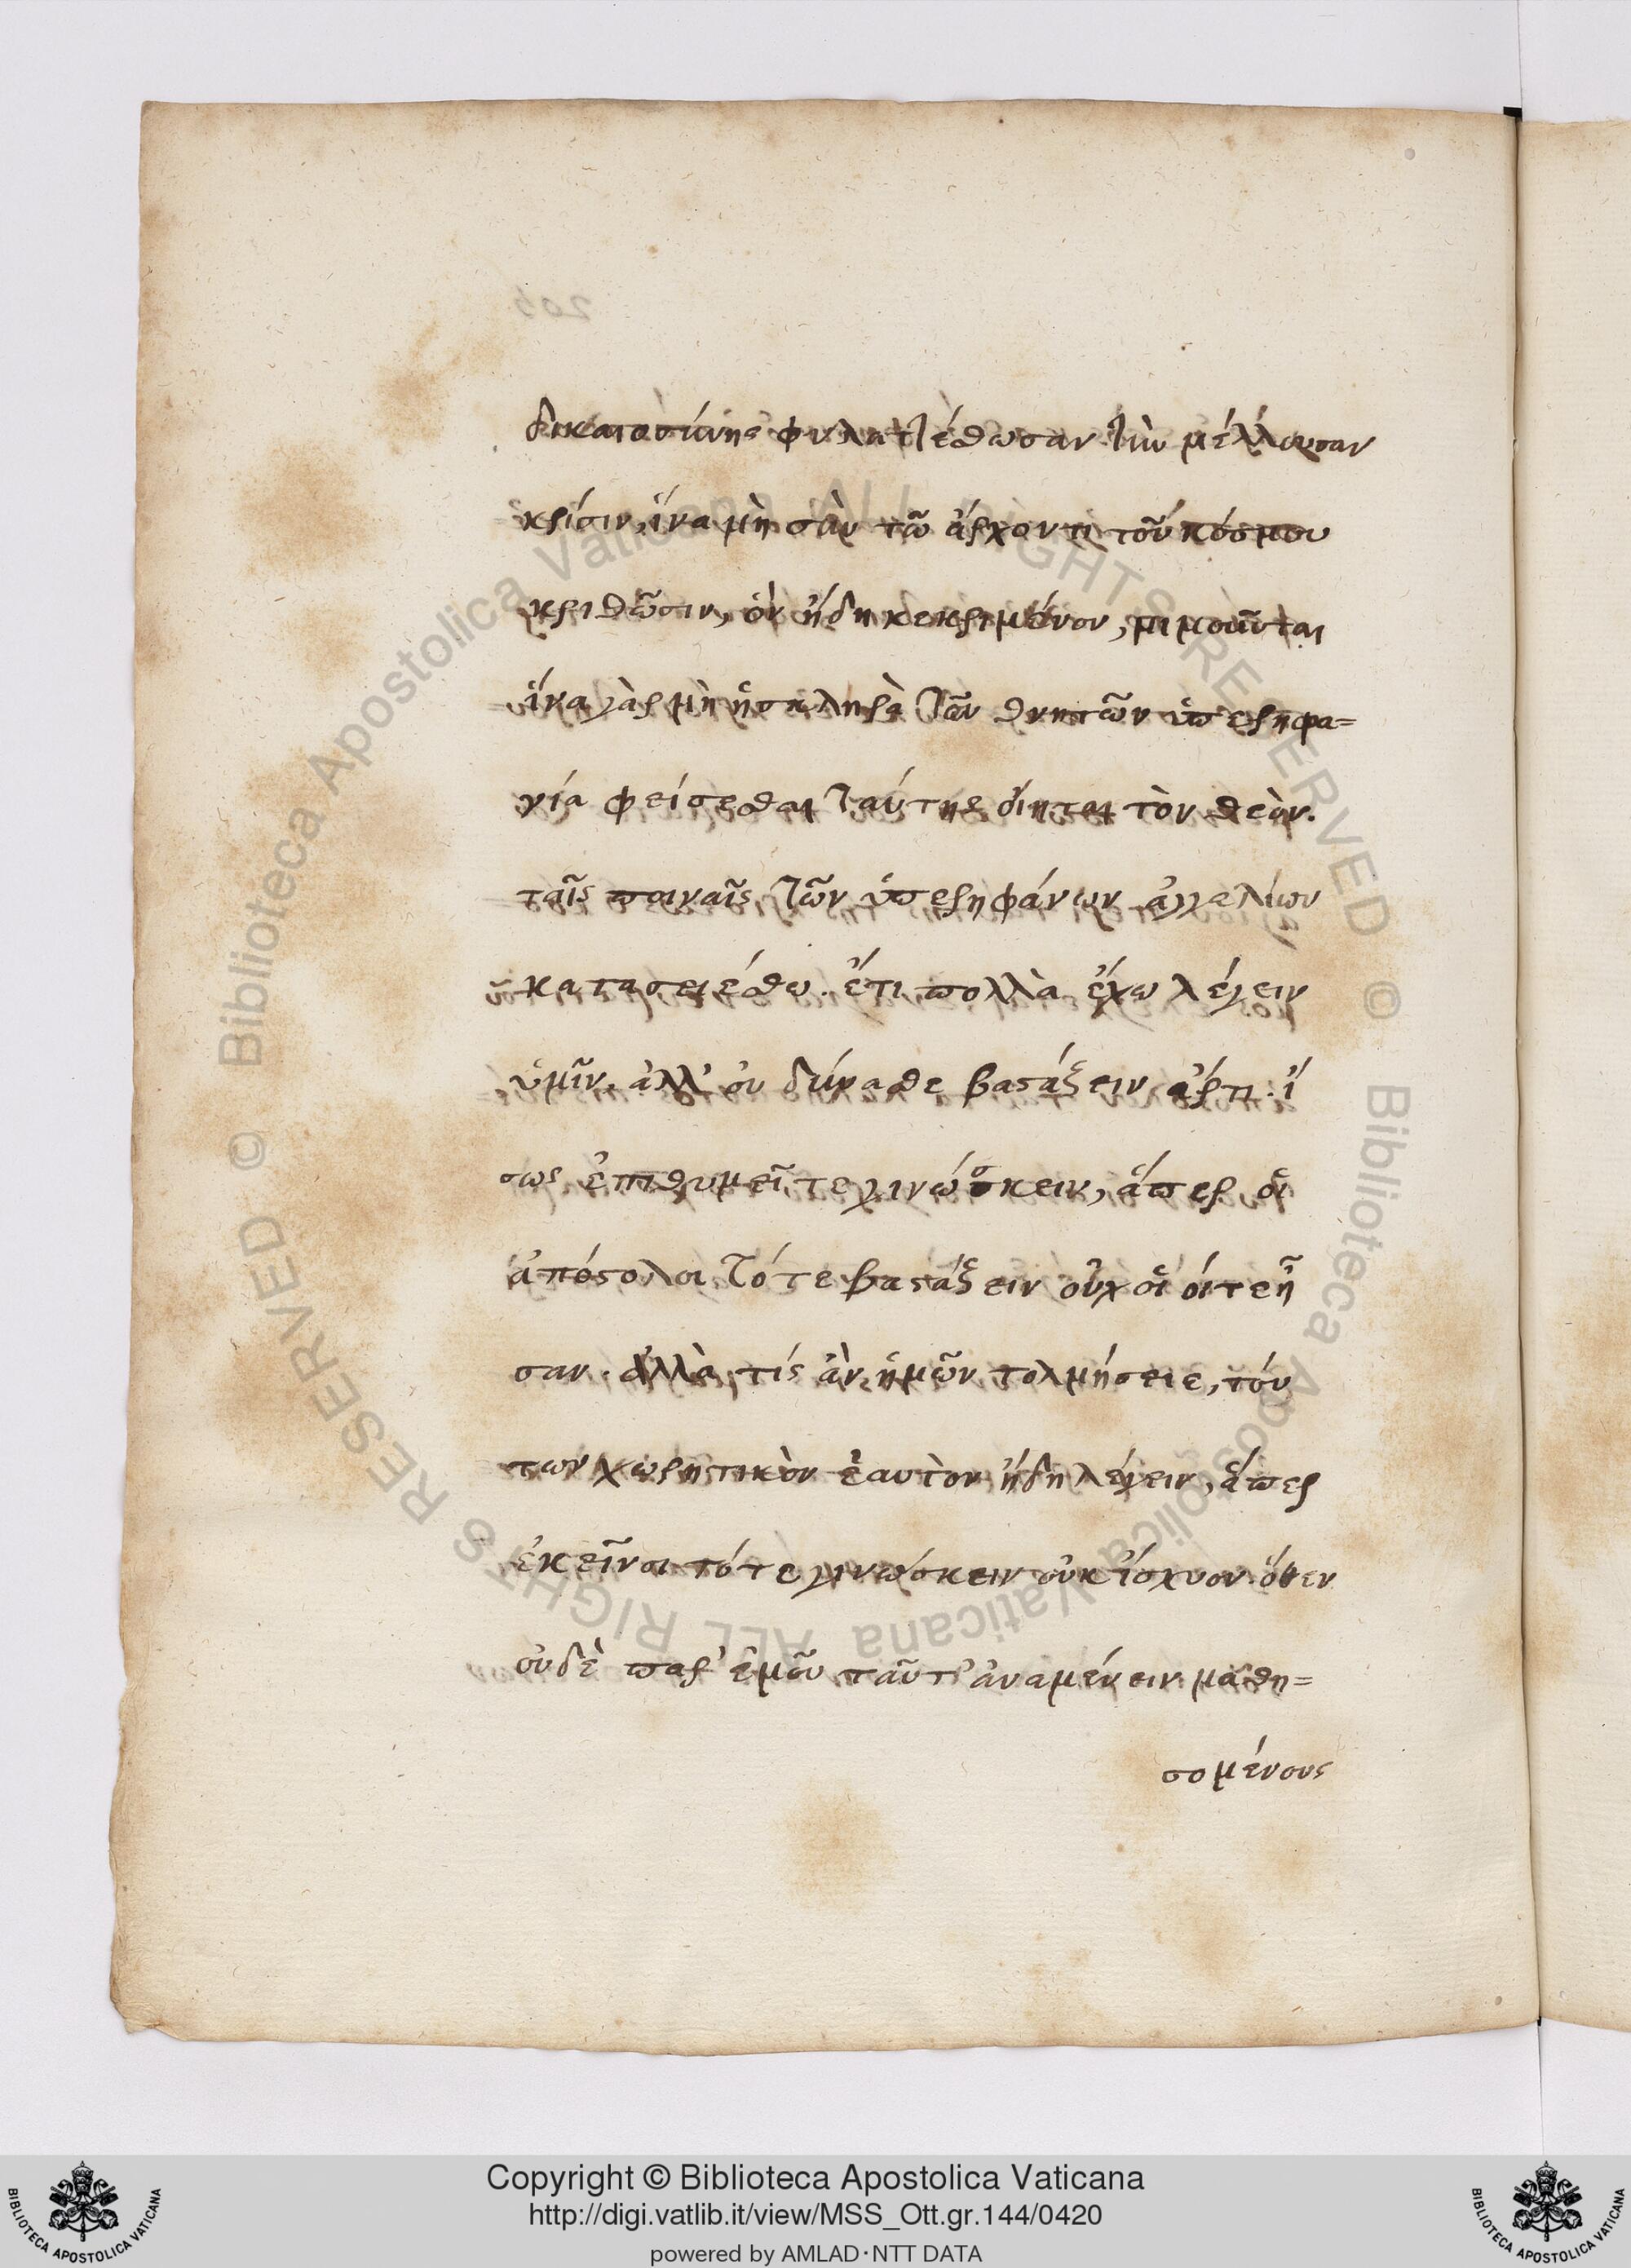 δικαιοσύνης φυλαττέσθωσαν τὴν μέλλουσαν
κρίσιν, ἵνα μὴ σὺν τῶ ἄρχοντι τοῦ κόσμου
κριθῶσιν, ὃν ἤδη κεκριμένον, μιμοῦνται
ἵνα γὰρ μὴ ἡ σκληρὰ τῶν θνητῶν ὑπερηφα=
νία φείσεσθαι ταύτης οἴηται τὸν θεὸν.
ταῖς ποιναῖς τῶν ὑπερηφάνων ἀγγελίων
κατασειέσθω. ἔτι πολλὰ ἔχω λέγειν
ὑμῖν. ἀλλ' οὐ δύνασθε βαστάζειν ἄρτι. ἴ
σως ἐπιθυμεῖτε γινώσκειν, ἅπερ οἱ
ἀπόστολοι τότε βαστάζειν οὐχ οἷοί τε ἦ
σαν. ἀλλὰ τίς ἂν ἡμῶν τολμήσειε, τού
των χωρητικὸν ἑαυτὸν ἤδη λέγειν, ἅπερ
ἐκεῖνοι τότε γινώσκειν οὐκ ἴσχυον. ὅθεν
οὐδὲ παρ' ἐμοῦ ταῦτ' ἀναμένειν μαθη=
σομένους
Copyright © Biblioteca Apostolica Vaticana
http://digi.vatlib.it/view/MSS_Ott.gr.144/0420
powered by AMLAD·NTT DATA
BIBLIOTECA APOSTOLICA VATICANA
BIBLIOTECA APOSTOLICA VATICANA
© Biblioteca Apostolica Vaticana ALL RIGHTS RESERVED © Biblioteca Apostolica Vaticana ALL RIGHTS RESERVED